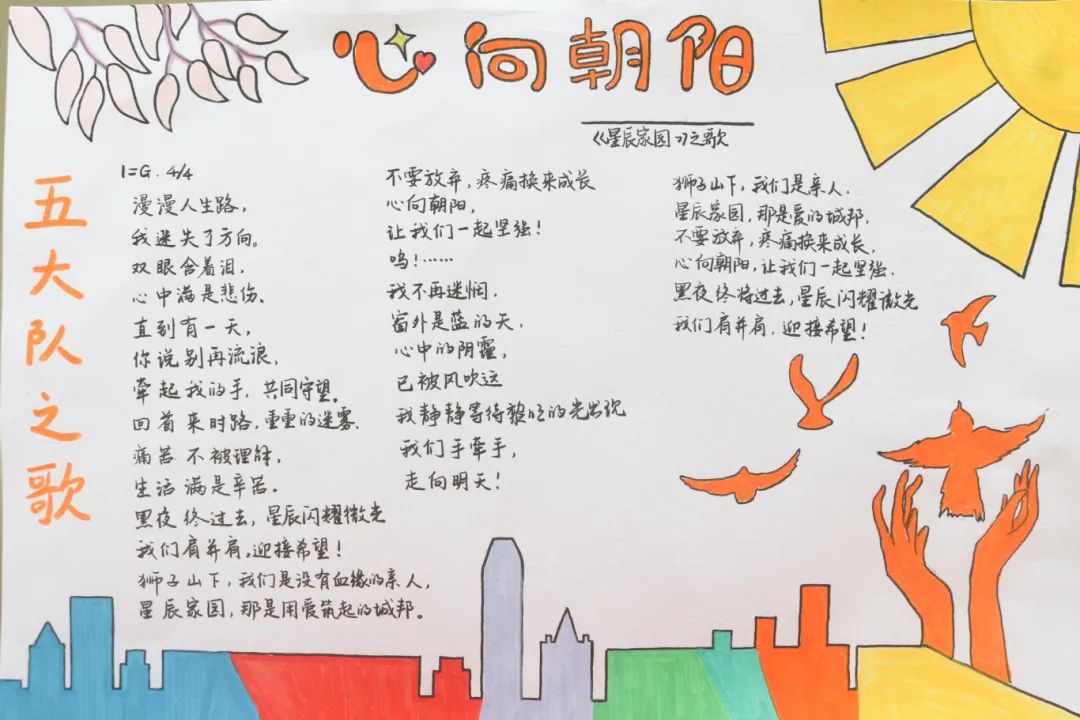 心向朝阳
《星辰家园》之歌
五大队之歌
1=G. 4/4
漫漫人生路,
我迷失了方向。
双眼含着泪,
心中满是悲伤.
直到有一天,
你说别再流浪,
牵起我的手,共同守望。
回首来时路,重重的迷雾.
痛苦不被理解,
生活满是辛苦。
黑夜终过去,星辰闪耀微光
我们肩并肩,迎接希望!
狮子山下,我们是没有血缘的亲人,
星辰家园,那是用爱筑起的城邦。
不要放弃,疼痛换来成长
心向朝阳,
让我们一起坚强!
呜!……
我不再迷惘.
窗外是蓝的天,
心中的阴霾,
已被风吹远
我静静等待黎明的光出现
我们手牵手,
走向明天!
狮子山下,我们是亲人.
星辰家园,那是爱的城邦.
不要放弃,疼痛换来成长.
心向朝阳,让我们一起坚强.
黑夜终将过去,星辰闪耀微光
我们肩并肩,迎接希望!